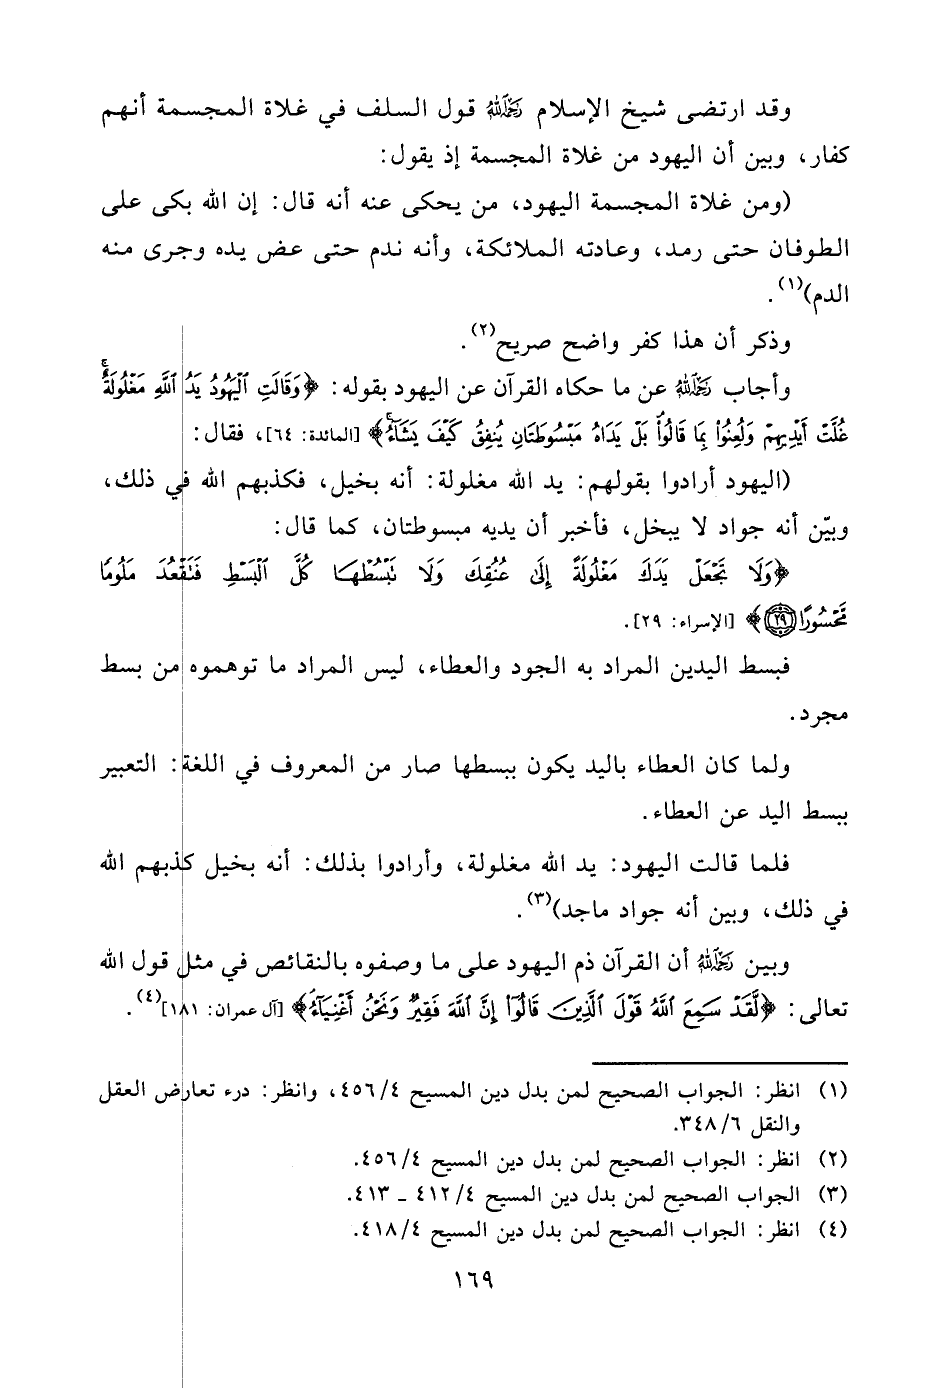 وقد ارتضى شيخ الإسلام رَحِمَهُ اللَّهُ قول السلف في غلاة المجسمة أنهم
كفار، وبين أن اليهود من غلاة المجسمة إذ يقول:
(ومن غلاة المجسمة اليهود، من يحكى عنه أنه قال: إن الله بكى على
الطوفان حتى رمد، وعادته الملائكة، وأنه ندم حتى عض يده وجرى منه
الدم)(١).
وذكر أن هذا كفر واضح صريح(٢).
وأجاب رَحِمَهُ اللَّهُ عن ما حكاه القرآن عن اليهود بقوله: ﴿وَقَالَتِ ٱلْيَهُودُ يَدُ ٱللَّهِ مَغْلُولَةٌۚ
غُلَّتْ أَيْدِيهِمْ وَلُعِنُوا۟ بِمَا قَالُوا۟ۘ بَلْ يَدَاهُ مَبْسُوطَتَانِ يُنفِقُ كَيْفَ يَشَآءُۚ﴾ [المائدة: ٦٤]، فقال:
(اليهود أرادوا بقولهم: يد الله مغلولة: أنه بخيل، فكذبهم الله في ذلك،
وبيّن أنه جواد لا يبخل، فأخبر أن يديه مبسوطتان، كما قال:
﴿وَلَا تَجْعَلْ يَدَكَ مَغْلُولَةً إِلَىٰ عُنُقِكَ وَلَا تَبْسُطْهَا كُلَّ ٱلْبَسْطِ فَتَقْعُدَ مَلُومًا
مَّحْسُورًا ﴿٢٩﴾﴾ [الإسراء: ٢٩].
فبسط اليدين المراد به الجود والعطاء، ليس المراد ما توهموه من بسط
مجرد.
ولما كان العطاء باليد يكون ببسطها صار من المعروف في اللغة: التعبير
ببسط اليد عن العطاء.
فلما قالت اليهود: يد الله مغلولة، وأرادوا بذلك: أنه بخيل كذبهم الله
في ذلك، وبين أنه جواد ماجد)(٣).
وبين رَحِمَهُ اللَّهُ أن القرآن ذم اليهود على ما وصفوه بالنقائص في مثل قول الله
تعالى: ﴿لَّقَدْ سَمِعَ ٱللَّهُ قَوْلَ ٱلَّذِينَ قَالُوٓا۟ إِنَّ ٱللَّهَ فَقِيرٌ وَنَحْنُ أَغْنِيَآءُۘ﴾ [آل عمران: ١٨١](٤).
(١) انظر: الجواب الصحيح لمن بدل دين المسيح ٤٥٦/٤، وانظر: درء تعارض العقل
والنقل ٣٤٨/٦.
(٢) انظر: الجواب الصحيح لمن بدل دين المسيح ٤٥٦/٤.
(٣) الجواب الصحيح لمن بدل دين المسيح ٤١٢/٤ ـ ٤١٣.
(٤) انظر: الجواب الصحيح لمن بدل دين المسيح ٤١٨/٤.
١٦٩